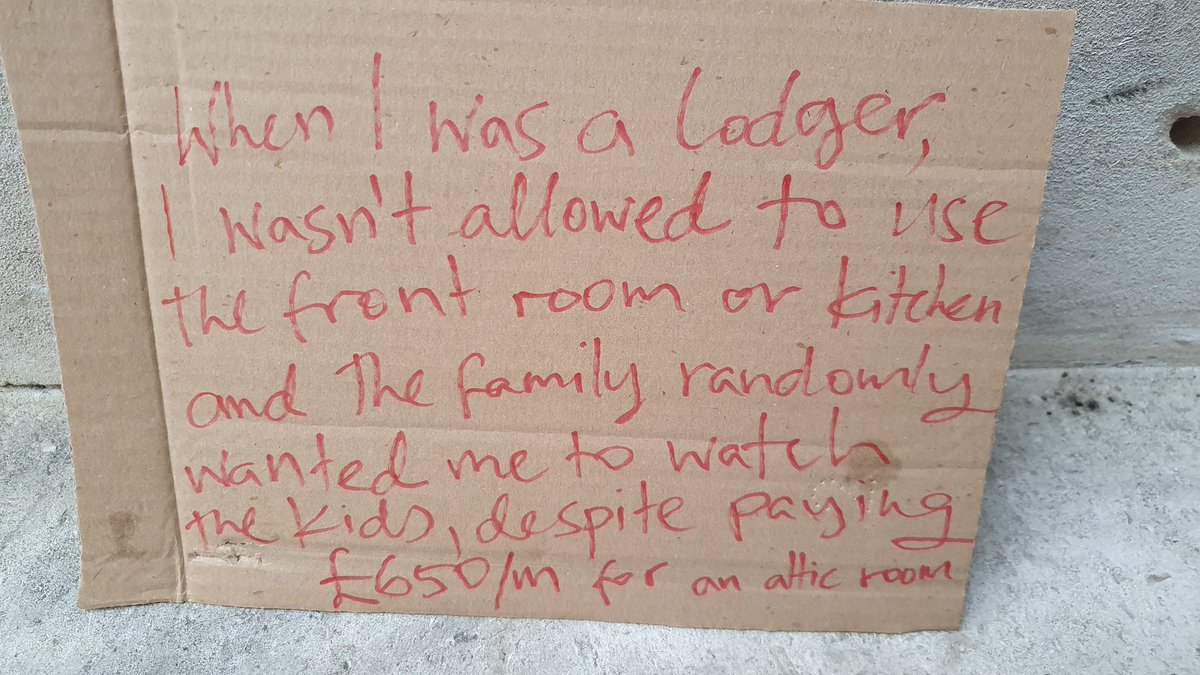 When I was a lodger,
I wasn't allowed to use
the front room or kitchen
and the family randomly
wanted me to watch
the kids, despite paying
£650/m for an attic room